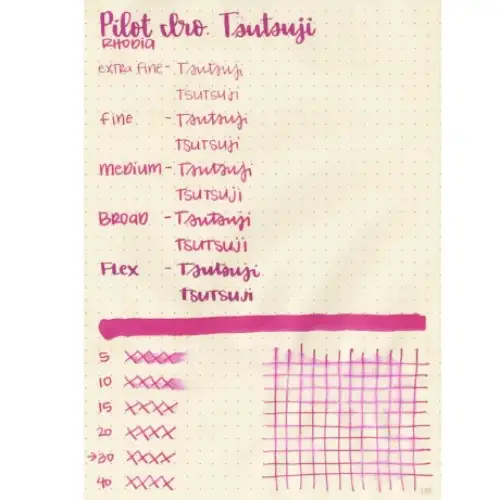 Pilot Iro. Tsutsuji
RHODIA
extra fine - Tsutsuji
TSUTSUJI
fine - Tsutsuji
TSUTSUJI
medium - Tsutsuji
TSUTSUJI
BROAD - Tsutsuji
TSUTSUJI
FLEX - Tsutsuji
TSUTSUJI
5 XXXX
10 XXXX
15 XXXX
20 XXXX
→30 XXXX
40 XXXX